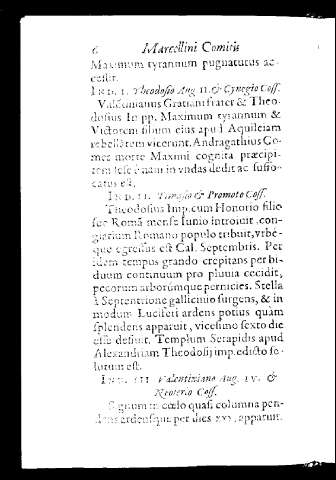 6 Marcellini Comitis
Maximum tyrannum pugnaturus ac-
cessit.
IND. I. Theodosio Aug. II. & Cynegio Coss.
Valentinianus Gratiani frater & Theo-
dosius Jo pp. Maximum tyrannum &
Victorem filium eius apud Aquileiam
rebellẽtem vicerunt. Andragathius Co-
mes morte Maximi cognita præcipi-
tem sese è navi in vndas dedit ac suffo-
catus est.
IND. II. Timasio & Promoto Coss.
Theodosius Imp. cum Honorio filio
suo Romã mense Iunio introiuit, con-
giarium Romano populo tribuit, vrbé-
que egressus est Cal. Septembris. Per
idem tempus grando crepitans per bi-
duum continuum pro pluuia cecidit,
pecorum arborúmque pernicies. Stella
à Septentrione gallicinio surgens, & in
modum Luciferi ardens potius quàm
splendens apparuit, vicesimo sexto die
esse desiuit. Templum Serapidis apud
Alexandriam Theodosij imp. edicto so-
lutum est.
IND. III Valentiniano Aug. IV. &
Neoterio Coss.
Signum in cœlo quasi columna pen-
dens ardensque per dies xxx. apparuit.